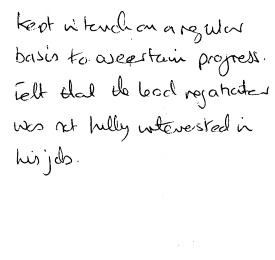 kept in touch on a regular
basis to ascertain progress.
Felt that the lead negotiator
was not fully interested in
his job.